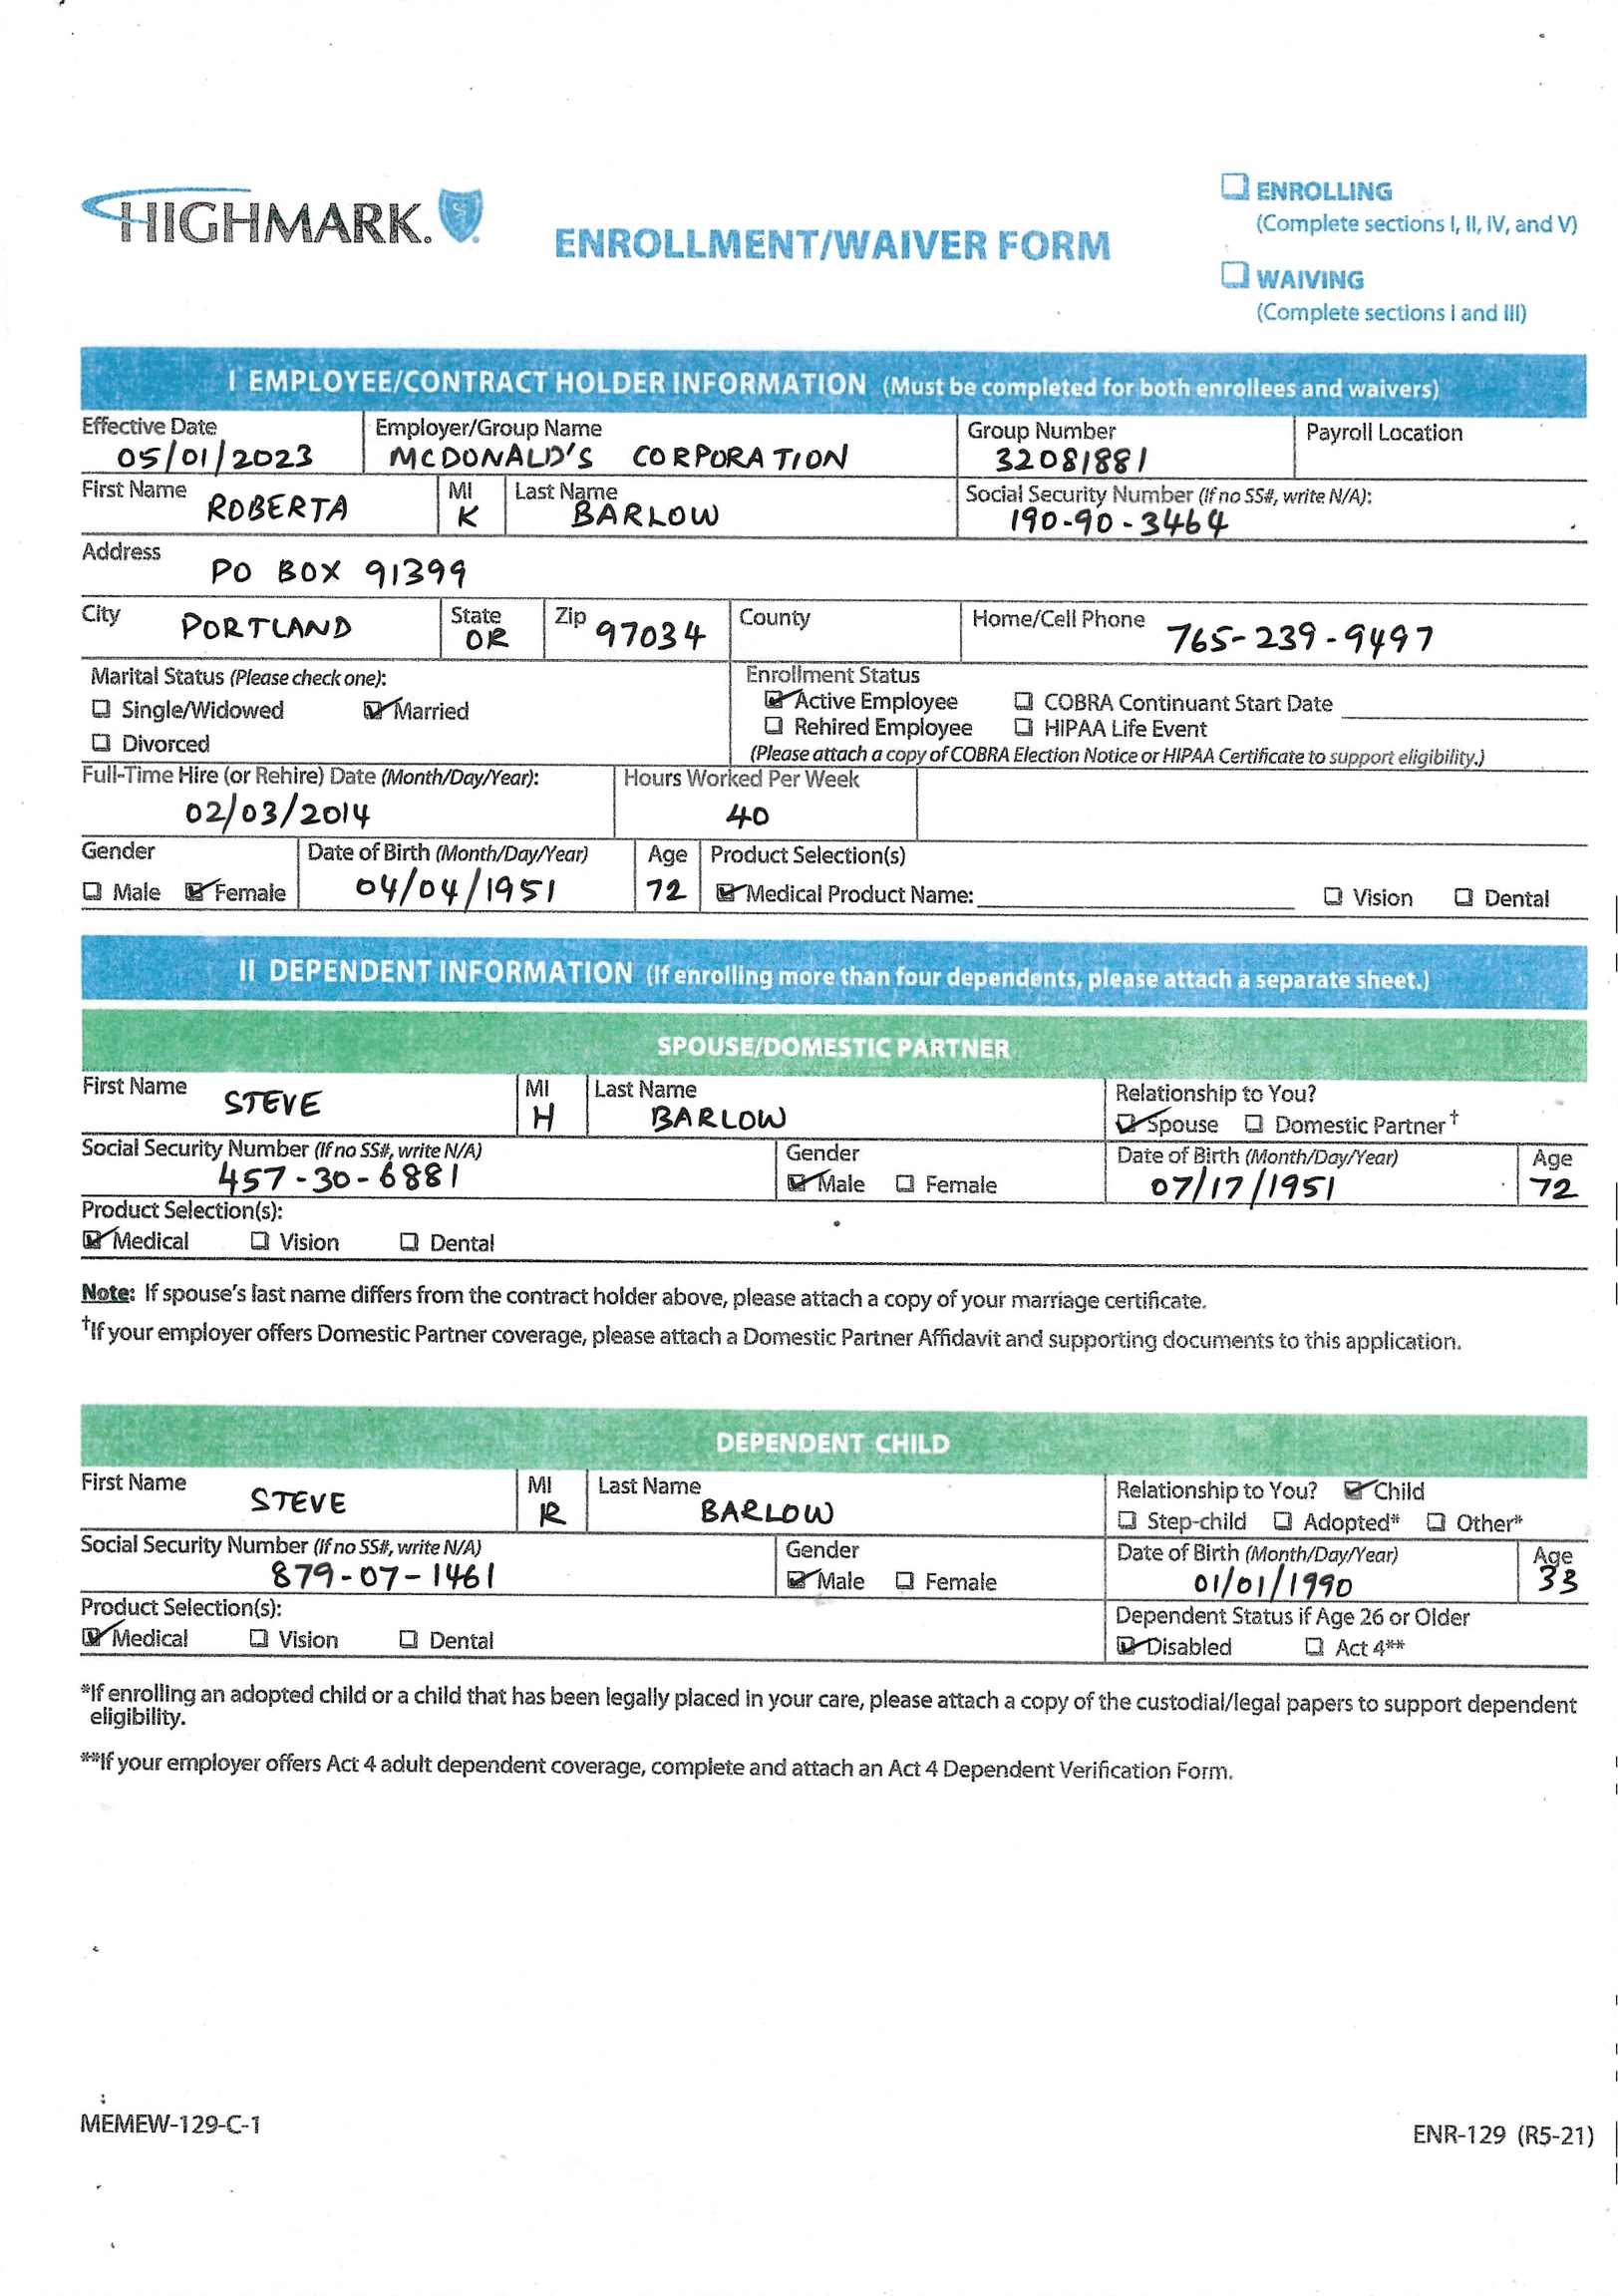 HIGHMARK.
ENROLLMENT/WAIVER FORM
ENROLLING
(Complete sections I, II, IV, and V)
WAIVING
(Complete sections I and III)
I EMPLOYEE/CONTRACT HOLDER INFORMATION (Must be completed for both enrollees and waivers)
Effective Date Employer/Group Name Group Number Payroll Location
05/01/2023 MCDONALD'S CORPORATION 32081881
First Name ROBERTA MI K Last Name BARLOW Social Security Number (If no SS#, write N/A):
190-90-3464
Address
PO BOX 91399
City PORTLAND State OR Zip 97034 County Home/Cell Phone 765-239-9497
Marital Status (Please check one): Enrollment Status
Single/Widowed Married Active Employee COBRA Continuant Start Date
Rehired Employee HIPAA Life Event
Divorced (Please attach a copy of COBRA Election Notice or HIPAA Certificate to support eligibility.)
Full-Time Hire (or Rehire) Date (Month/Day/Year): Hours Worked Per Week
02/03/2014 40
Gender Date of Birth (Month/Day/Year) Age Product Selection(s)
Male Female 04/04/1951 72 Medical Product Name: Vision Dental
II DEPENDENT INFORMATION (If enrolling more than four dependents, please attach a separate sheet.)
SPOUSE/DOMESTIC PARTNER
First Name STEVE MI H Last Name BARLOW Relationship to You?
Spouse Domestic Partner†
Social Security Number (If no SS#, write N/A) Gender Date of Birth (Month/Day/Year) Age
457-30-6881 Male Female 07/17/1951 72
Product Selection(s):
Medical Vision Dental
Note: If spouse's last name differs from the contract holder above, please attach a copy of your marriage certificate.
†If your employer offers Domestic Partner coverage, please attach a Domestic Partner Affidavit and supporting documents to this application.
DEPENDENT CHILD
First Name STEVE MI R Last Name BARLOW Relationship to You? Child
Step-child Adopted* Other*
Social Security Number (If no SS#, write N/A) Gender Date of Birth (Month/Day/Year) Age
879-07-1461 Male Female 01/01/1990 33
Product Selection(s): Dependent Status if Age 26 or Older
Medical Vision Dental Disabled Act 4**
*If enrolling an adopted child or a child that has been legally placed in your care, please attach a copy of the custodial/legal papers to support dependent
eligibility.
**If your employer offers Act 4 adult dependent coverage, complete and attach an Act 4 Dependent Verification Form.
MEMEW-129-C-1
ENR-129 (R5-21)